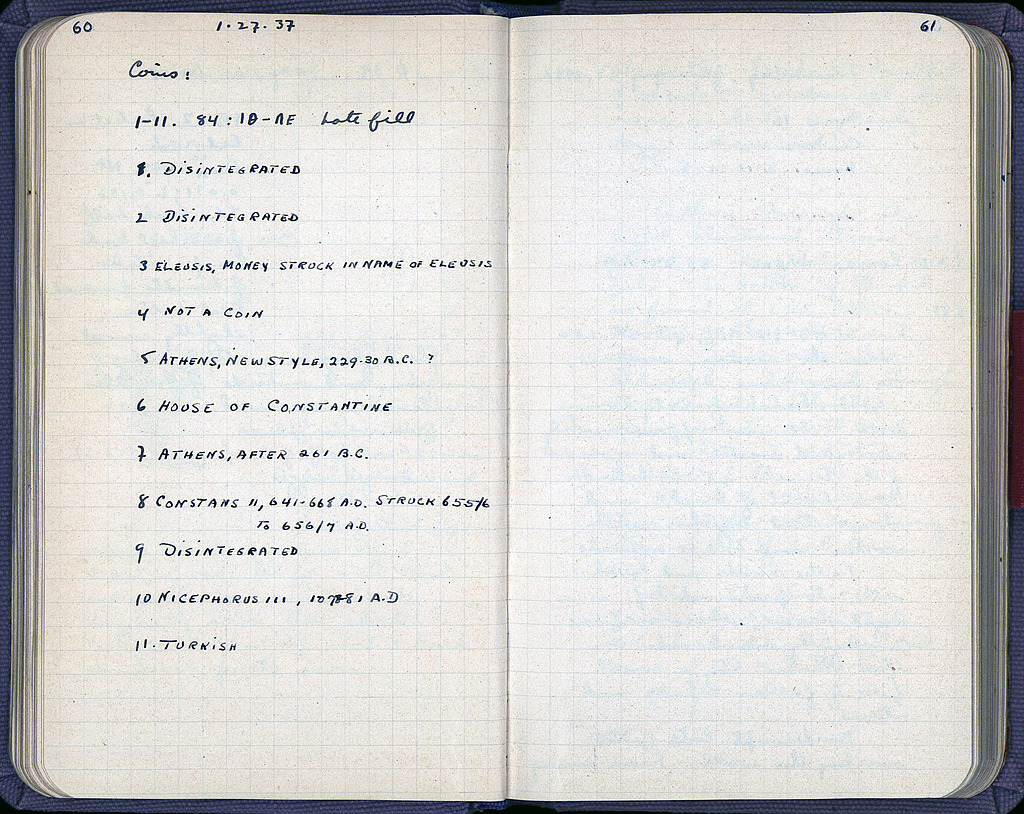 60
1·27·37
Coins:
1-11. 84:ΙΘ-ΛΕ Late fill
1. DISINTEGRATED
2 DISINTEGRATED
3 ELEUSIS, MONEY STRUCK IN NAME OF ELEUSIS
4 NOT A COIN
5 ATHENS, NEW STYLE, 229-30 B.C. ?
6 HOUSE OF CONSTANTINE
7 ATHENS, AFTER 261 B.C.
8 CONSTANS II, 641-668 A.D. STRUCK 655/6
TO 656/7 A.D.
9 DISINTEGRATED
10 NICEPHORUS III, 1078-81 A.D
11. TURKISH
61